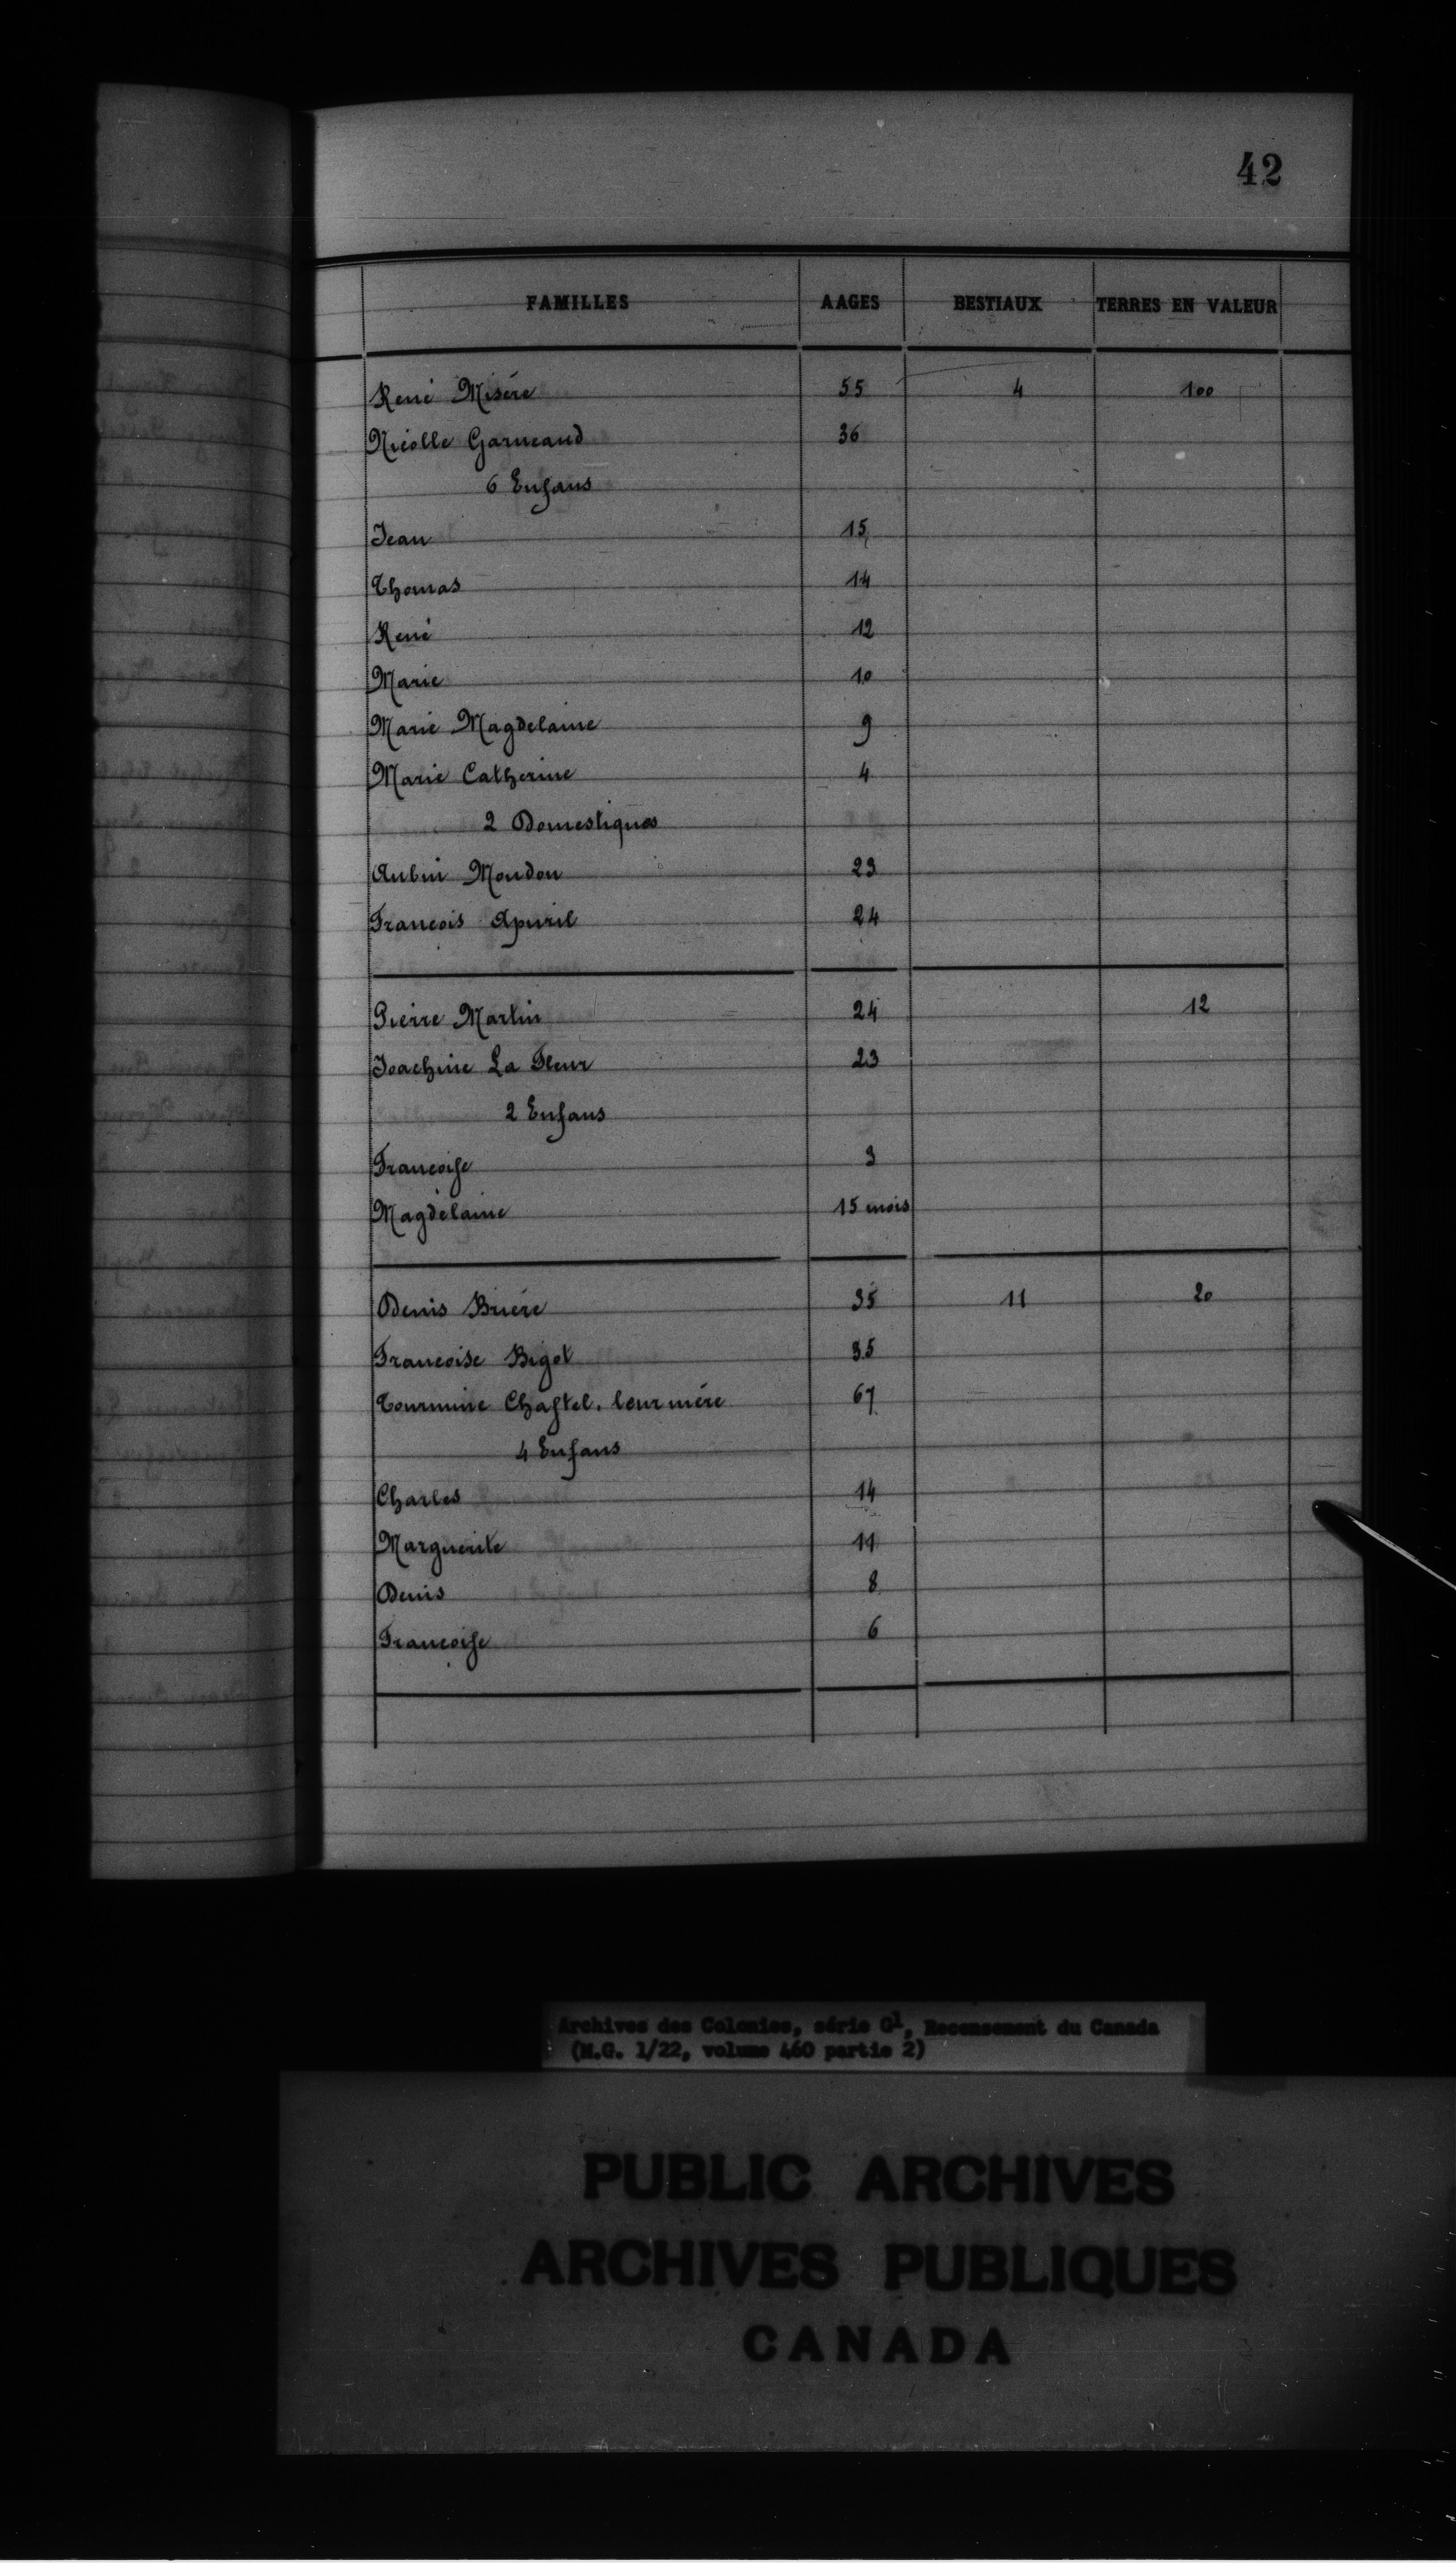 42
FAMILLES AAGES BESTIAUX TERRES EN VALEUR
René Misére 55 4 100
Nicolle Garneaud 36
6 Enfans
Jean 15
Thomas 14
René 12
Marie 10
Marie Magdelaine 9
Marie Catherine 4
2 Domestiques
Aubin Moudon 23
Francois Apuril 24
Pierre Martin 24 12
Joachine La Fleur 23
2 Enfans
Francoise 3
Magdelaine 15 mois
Denis Briére 35 11 20
Francoise Bigot 35
Tournine Chastel, leur mére 67
4 Enfans
Charles 14
Marguerite 11
Denis 8
Francoise 6
Archives des Colonies, série G1, Recensement du Canada
(M.G. 1/22, volume 460 partie 2)
PUBLIC ARCHIVES
ARCHIVES PUBLIQUES
CANADA